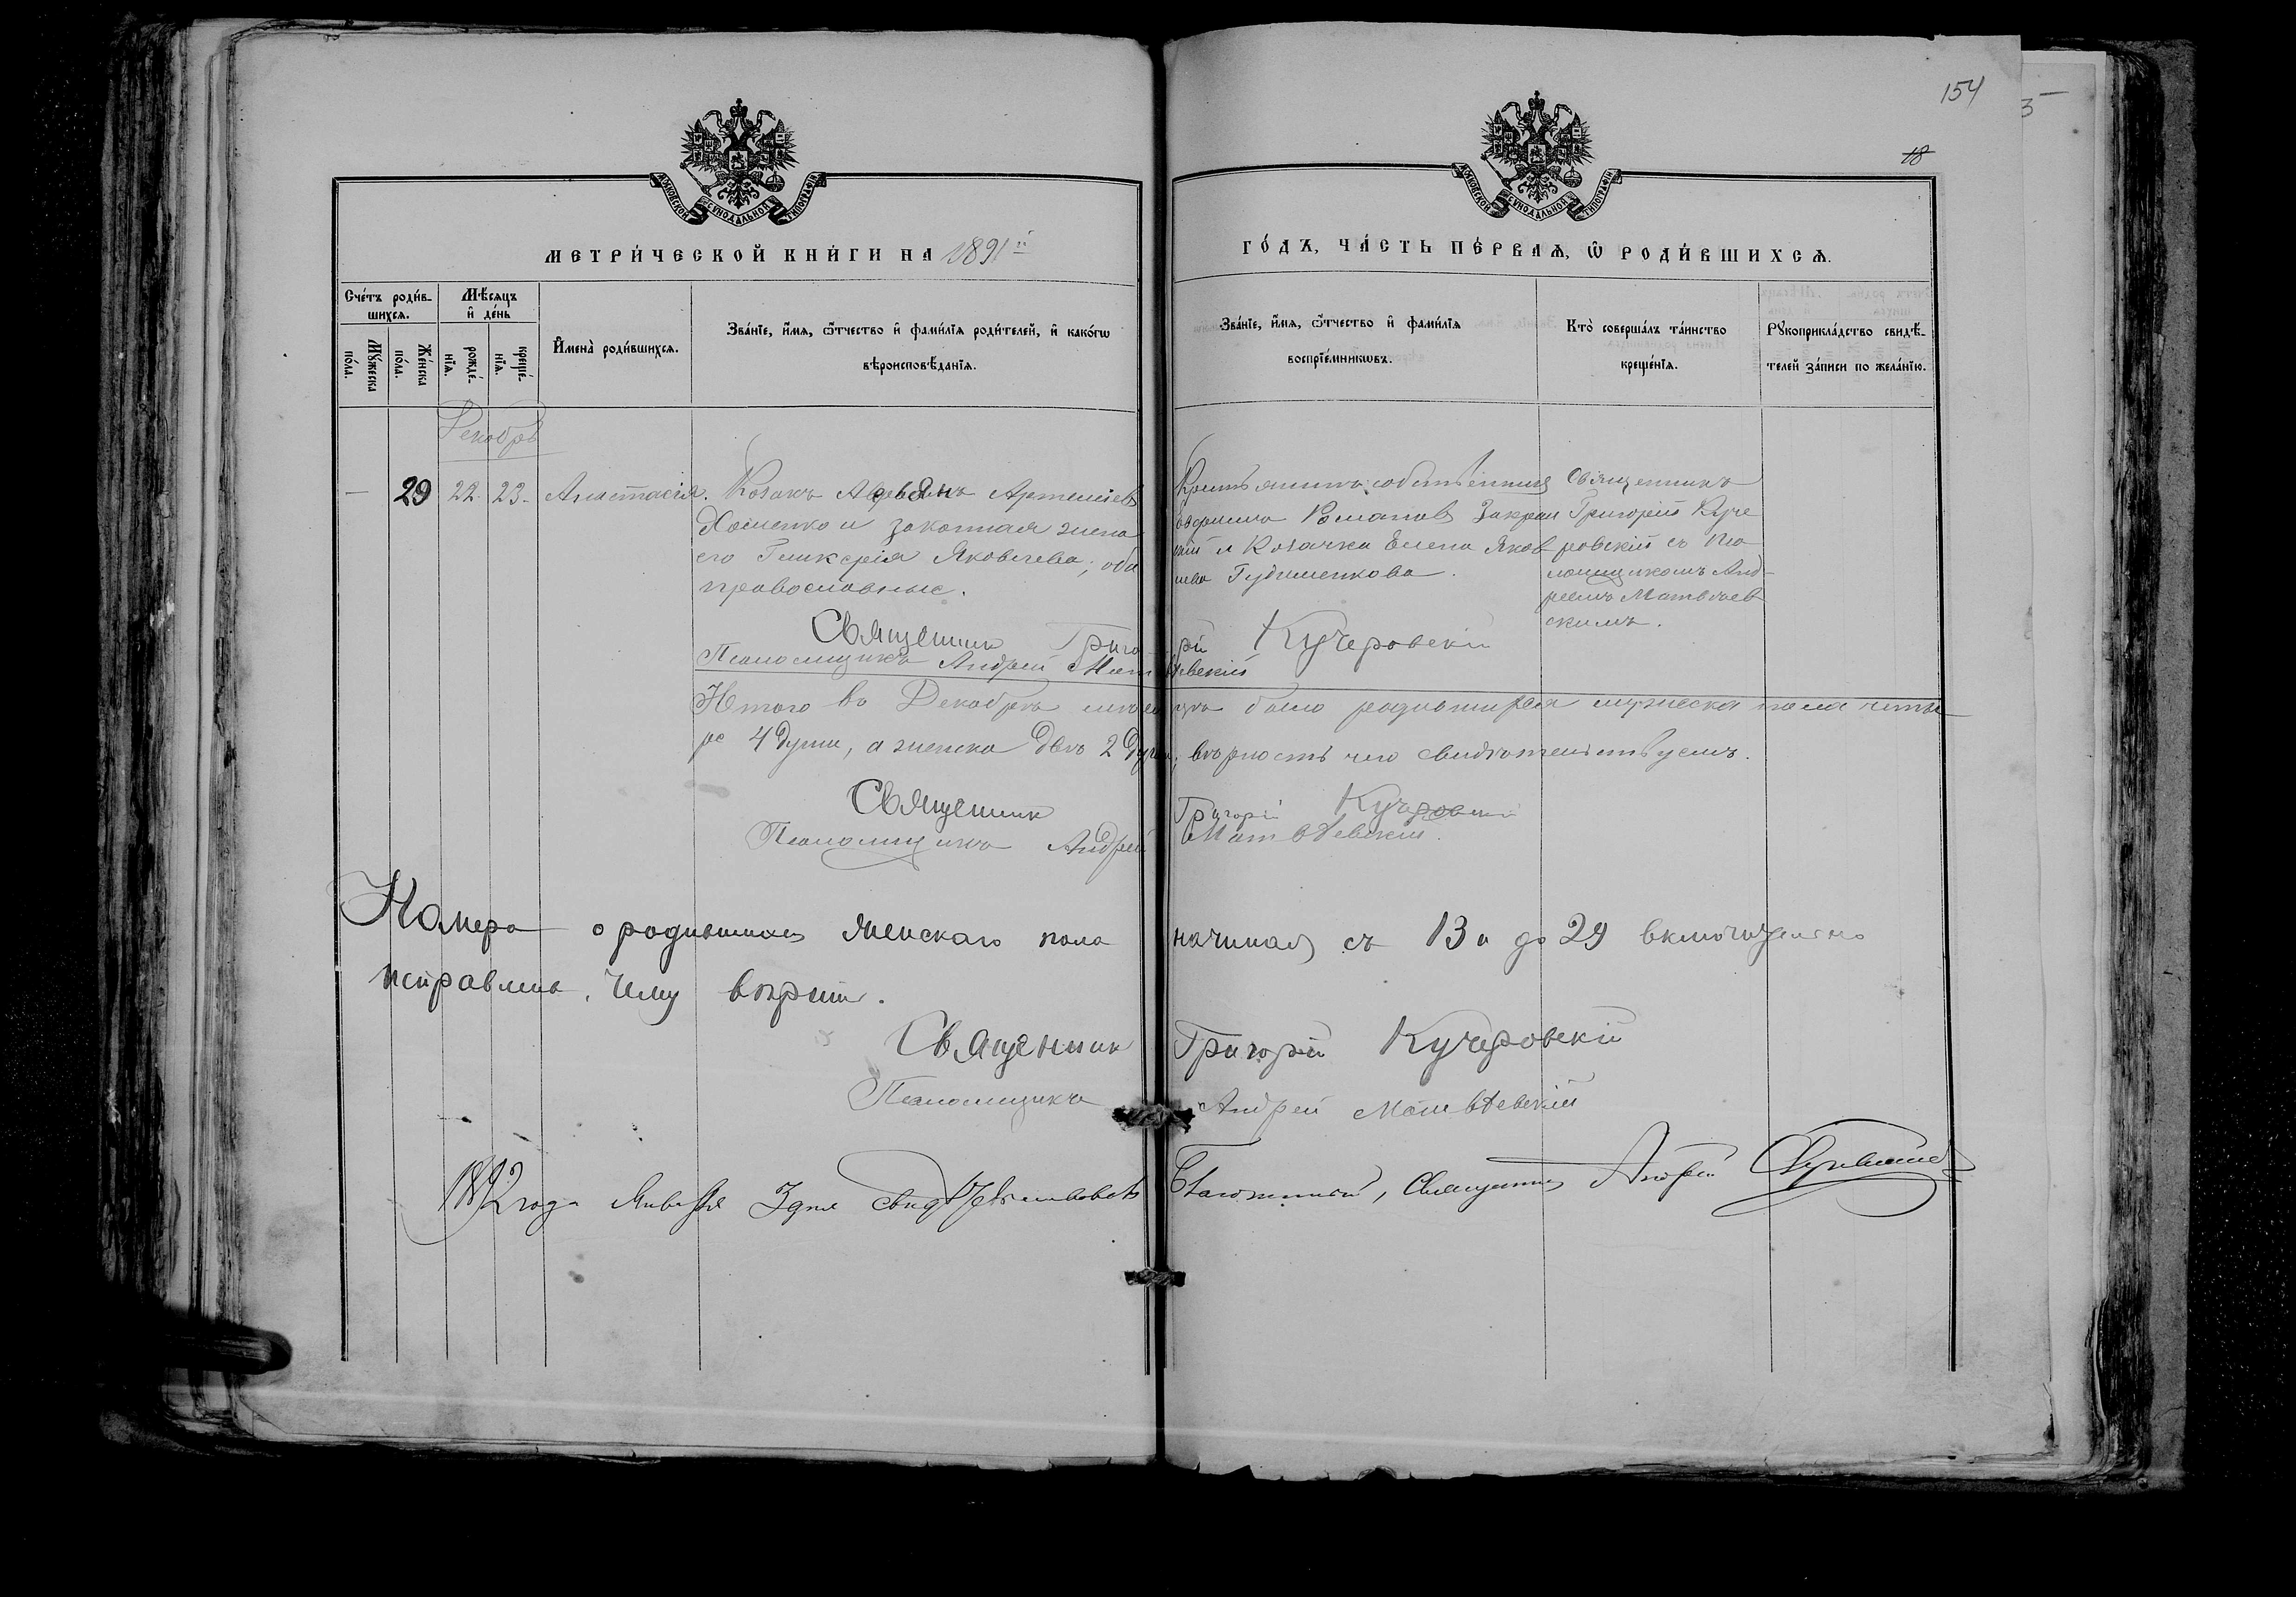 154
18
МОСКОВСКОЙ СѴНОДАЛЬНОЙ ТИПОГРАФІИ
МОСКОВСКОЙ СѴНОДАЛЬНОЙ ТИПОГРАФІИ
МЕТРИ́ЧЕСКОЙ КНИ́ГИ НА 1891й
ГО́ДЪ, ЧА́СТЬ ПЕ́РВАѦ, Ѡ҆ РОДИ́ВШИХСѦ.
Сче́тъ роди́в-
шихсѧ.
Мѣ́сѧцъ
и҆ де́нь
Мꙋ́жеска
по́ла.
Же́нска
по́ла.
рожде́-
нїѧ.
креще́-
нїѧ.
И҆мена̀ роди́вшихсѧ.
Зва́нїе, и҆́мѧ, ѻ҆́тчество и҆ фами́лїѧ роди́телей, и҆ како́гѡ
вѣроисповѣ́данїѧ.
Зва́нїе, и҆́мѧ, ѻ҆́тчество и҆ фами́лїѧ
воспрїе́мникѡвъ.
Кто̀ соверша́лъ та́инство
креще́нїѧ.
Рꙋкоприкла́дство свидѣ́-
телей за́писи по жела́нїю.
Декабрь
— 29 22. 23. Анастасія.
Козакъ Авервянъ Артеміев
Хоменко и законная жена
его Гликерія Яковлева; оба
православные.
Крестьянинъ собственник
Романов
и Козачка Елена Яков
лева Гудименкова.
Священникъ
Григорій Куче
ровскій съ Пса
ломщикомъ Анд-
реемъ Матвѣев
скимъ.
Священник Григорій Кучеровскій
Псаломщикъ Андрей Матвѣевскій
Итого въ Декабрѣ месяцѣ было родившихся мужеска пола четы
ре 4 души, а женска двѣ 2 души, вѣрность чего свидѣтельствуемъ.
Священник Григорій Кучеровскій
Псаломщикъ Андрей Матвѣевскій.
Номера о родившихся женскаго пола начиная съ 13 и до 29 включительно
исправлены, чему вѣрить.
Священник Григорій Кучеровскій
Псаломщикъ Андрей Матвѣевскій
1892 года Января 3 дня свидѣтельствовалъ Благочинный, Священникъ Андрей